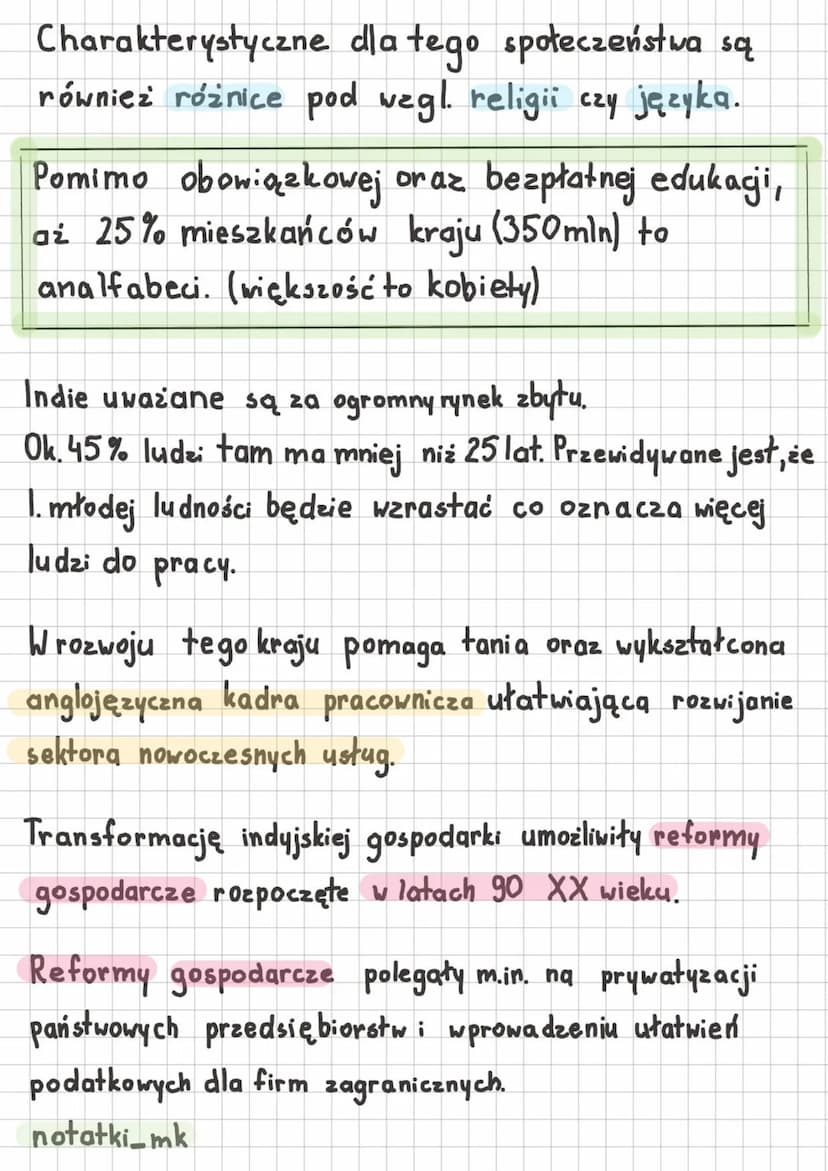 Charakterystyczne dla tego społeczeństwa są
również różnice pod wzgl. religii czy języka.
Pomimo obowiązkowej oraz bezpłatnej edukacji,
aż 25% mieszkańców kraju (350mln) to
analfabeci. (większość to kobiety)
Indie uważane są za ogromny rynek zbytu.
Ok. 45% ludzi tam ma mniej niż 25 lat. Przewidywane jest, że
l. młodej ludności będzie wzrastać co oznacza więcej
ludzi do pracy.
W rozwoju tego kraju pomaga tania oraz wykształcona
anglojęzyczna kadra pracownicza ułatwiającą rozwijanie
sektora nowoczesnych usług.
Transformację indyjskiej gospodarki umożliwiły reformy
gospodarcze rozpoczęte w latach 90 XX wieku.
Reformy gospodarcze polegały m.in. na prywatyzacji
państwowych przedsiębiorstw i wprowadzeniu ułatwień
podatkowych dla firm zagranicznych.
notatki_mk